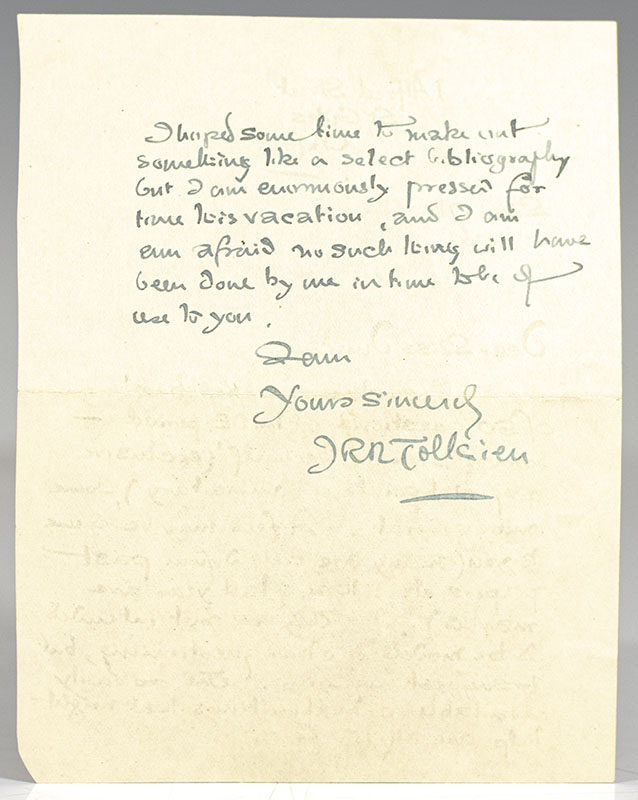 I hoped some time to make out
something like a select bibliography
but I am enormously pressed for
time this vacation, and I am
afraid no such thing will have
been done by me in time to be of
use to you.
I am
Yours sincerely
JRR Tolkien